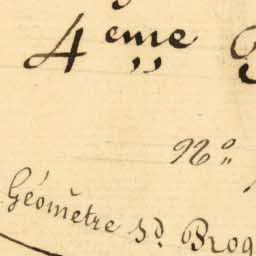 4eme
No
Géomètre Sd. Brog